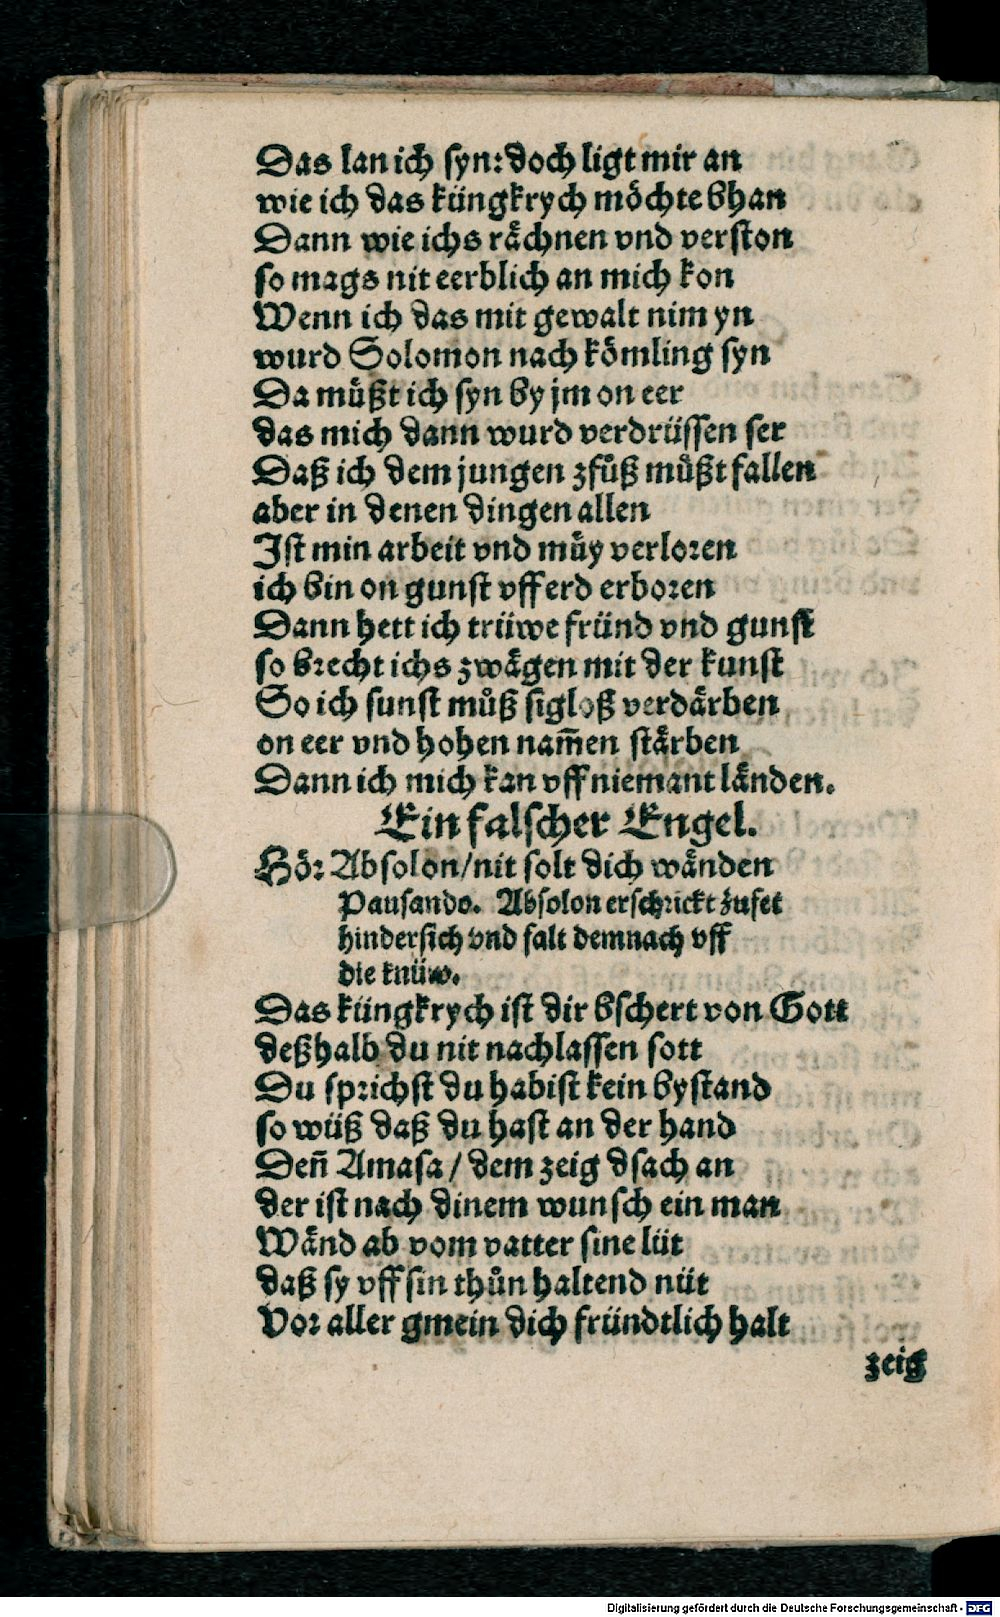 Das lan ich syn: doch ligt mir an
wie ich das küngkrych möchte bhan
Dann wie ichs rächnen vnd verston
so mags nit eerblich an mich kon
Wenn ich das mit gewalt nim yn
wurd Solomon nach kömling syn
Da müßt ich syn by jm on eer
das mich dann wurd verdrüssen ser
Daß ich dem jungen zfůß müßt fallen
aber in denen dingen allen
Ist min arbeit vnd müy verloren
ich bin on gunst vff erd erboren
Dann hett ich trüwe fründ vnd gunst
so brecht ichs zwägen mit der kunst
So ich sunst můß sigloß verdärben
on eer vnd hohen nam̄en stärben
Dann ich mich kan vff niemant länden.
Ein falscher Engel.
Hör Absolon/nit solt dich wänden
Pausando. Absolon erschrickt zuset
hindersich vnd falt demnach vff
die knüw.
Das küngkrych ist dir bschert von Gott
deßhalb du nit nachlassen sott
Du sprichst du habist kein bystand
so wüß daß du hast an der hand
Den̄ Amasa / dem zeig dsach an
der ist nach dinem wunsch ein man
Wänd ab vom vatter sine lüt
daß sy vff sin thůn haltend nüt
Vor aller gmein dich fründtlich halt
zeig
Digitalisierung gefördert durch die Deutsche Forschungsgemeinschaft - DFG